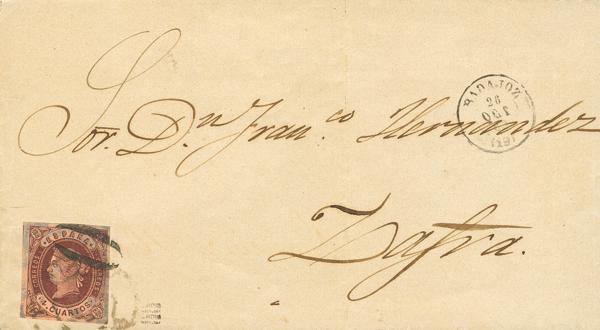 Sor. Dn. Franco Hernandez
Zafra.
BADAJOZ
26
(19)
ESPAÑA
CORREOS
4 CUARTOS